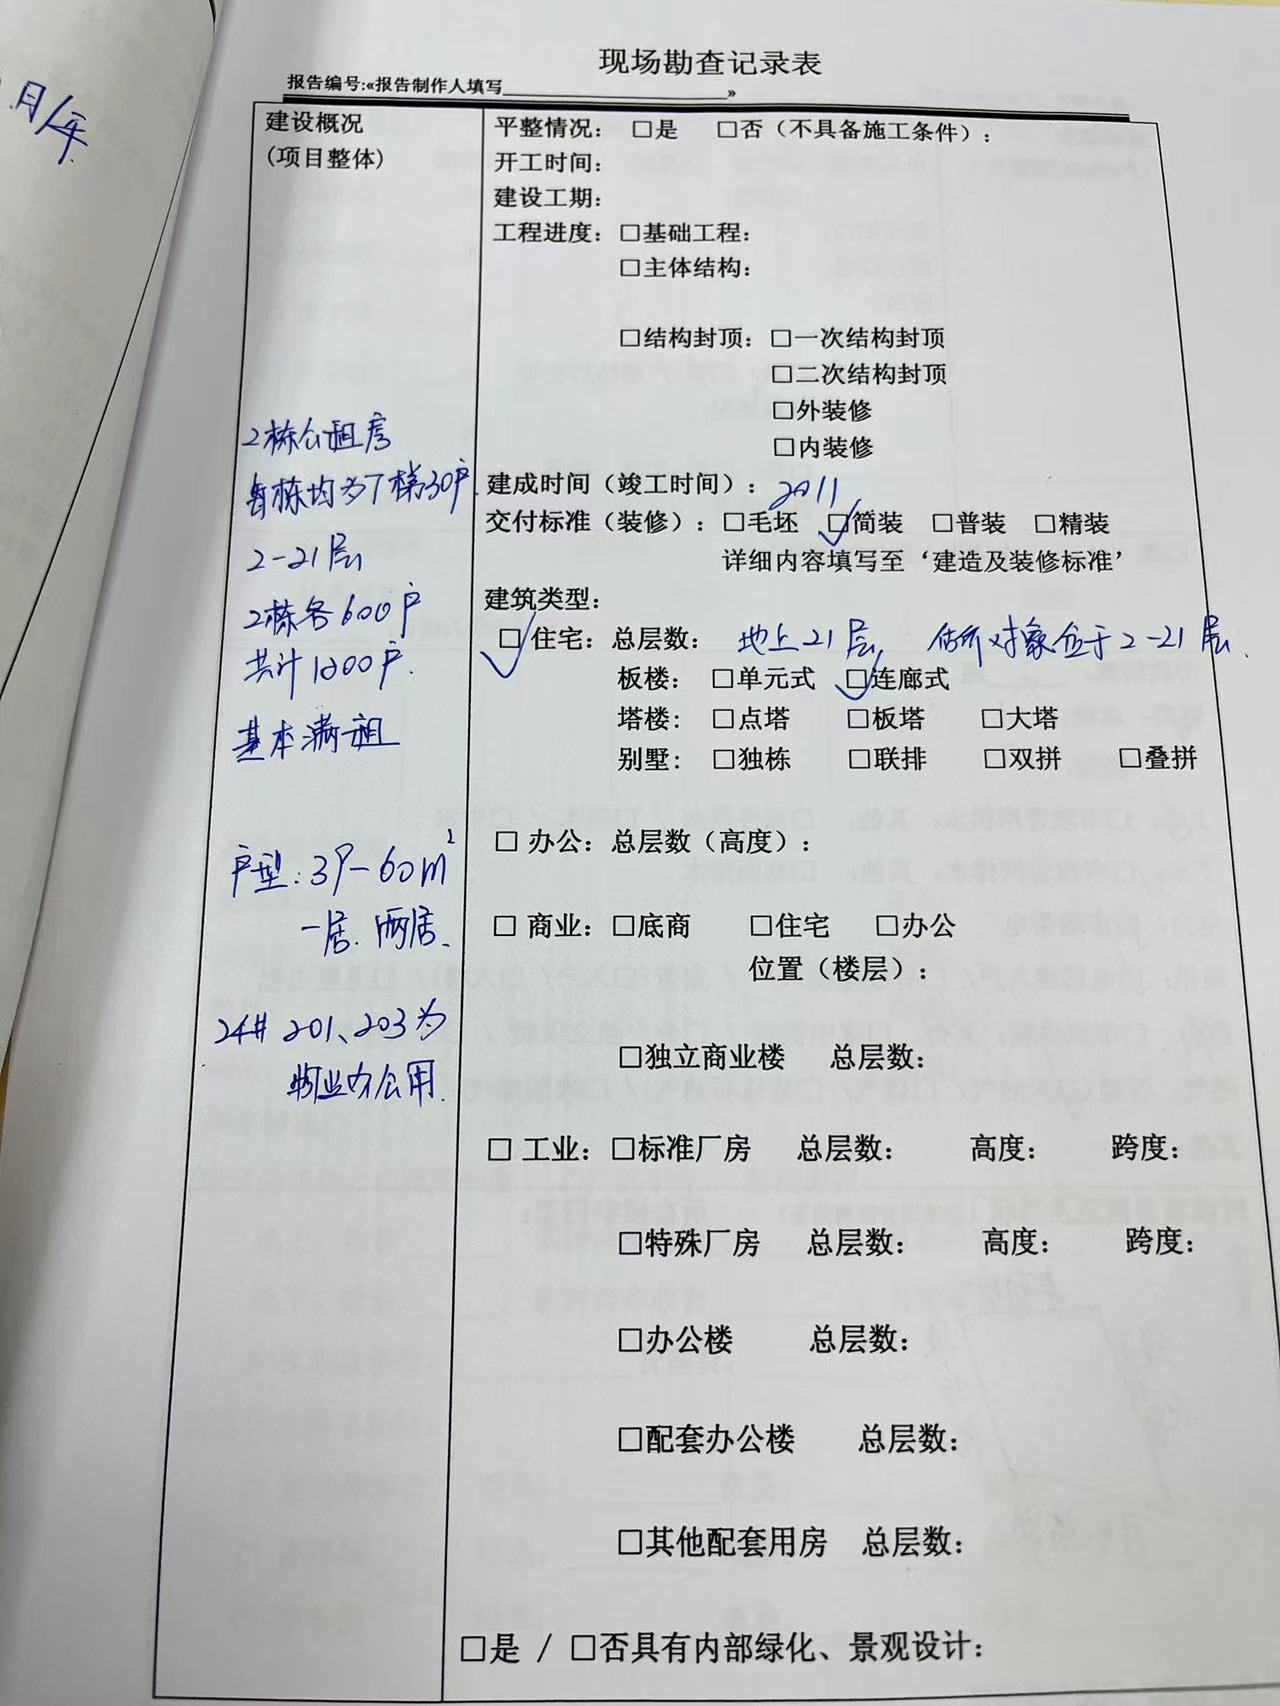 月/年
现场勘查记录表
报告编号:«报告制作人填写____________________»
建设概况
(项目整体)
2栋公租房
每栋均为7梯30户
2-21层
2栋各600户
共计1200户.
基本满租
户型:39-60m²
一居.两居.
24# 201、203为
物业办公用.
平整情况: □是 □否(不具备施工条件):
开工时间:
建设工期:
工程进度: □基础工程:
□主体结构:
□结构封顶: □一次结构封顶
□二次结构封顶
□外装修
□内装修
建成时间(竣工时间): 2011
交付标准(装修): □毛坯 ☑简装 □普装 □精装
详细内容填写至‘建造及装修标准’
建筑类型:
☑ 住宅: 总层数: 地上21层, 估价对象位于2-21层.
板楼: □单元式 ☑连廊式
塔楼: □点塔 □板塔 □大塔
别墅: □独栋 □联排 □双拼 □叠拼
□ 办公: 总层数(高度):
□ 商业: □底商 □住宅 □办公
位置(楼层):
□独立商业楼 总层数:
□ 工业: □标准厂房 总层数: 高度: 跨度:
□特殊厂房 总层数: 高度: 跨度:
□办公楼 总层数:
□配套办公楼 总层数:
□其他配套用房 总层数:
□是 / □否具有内部绿化、景观设计: